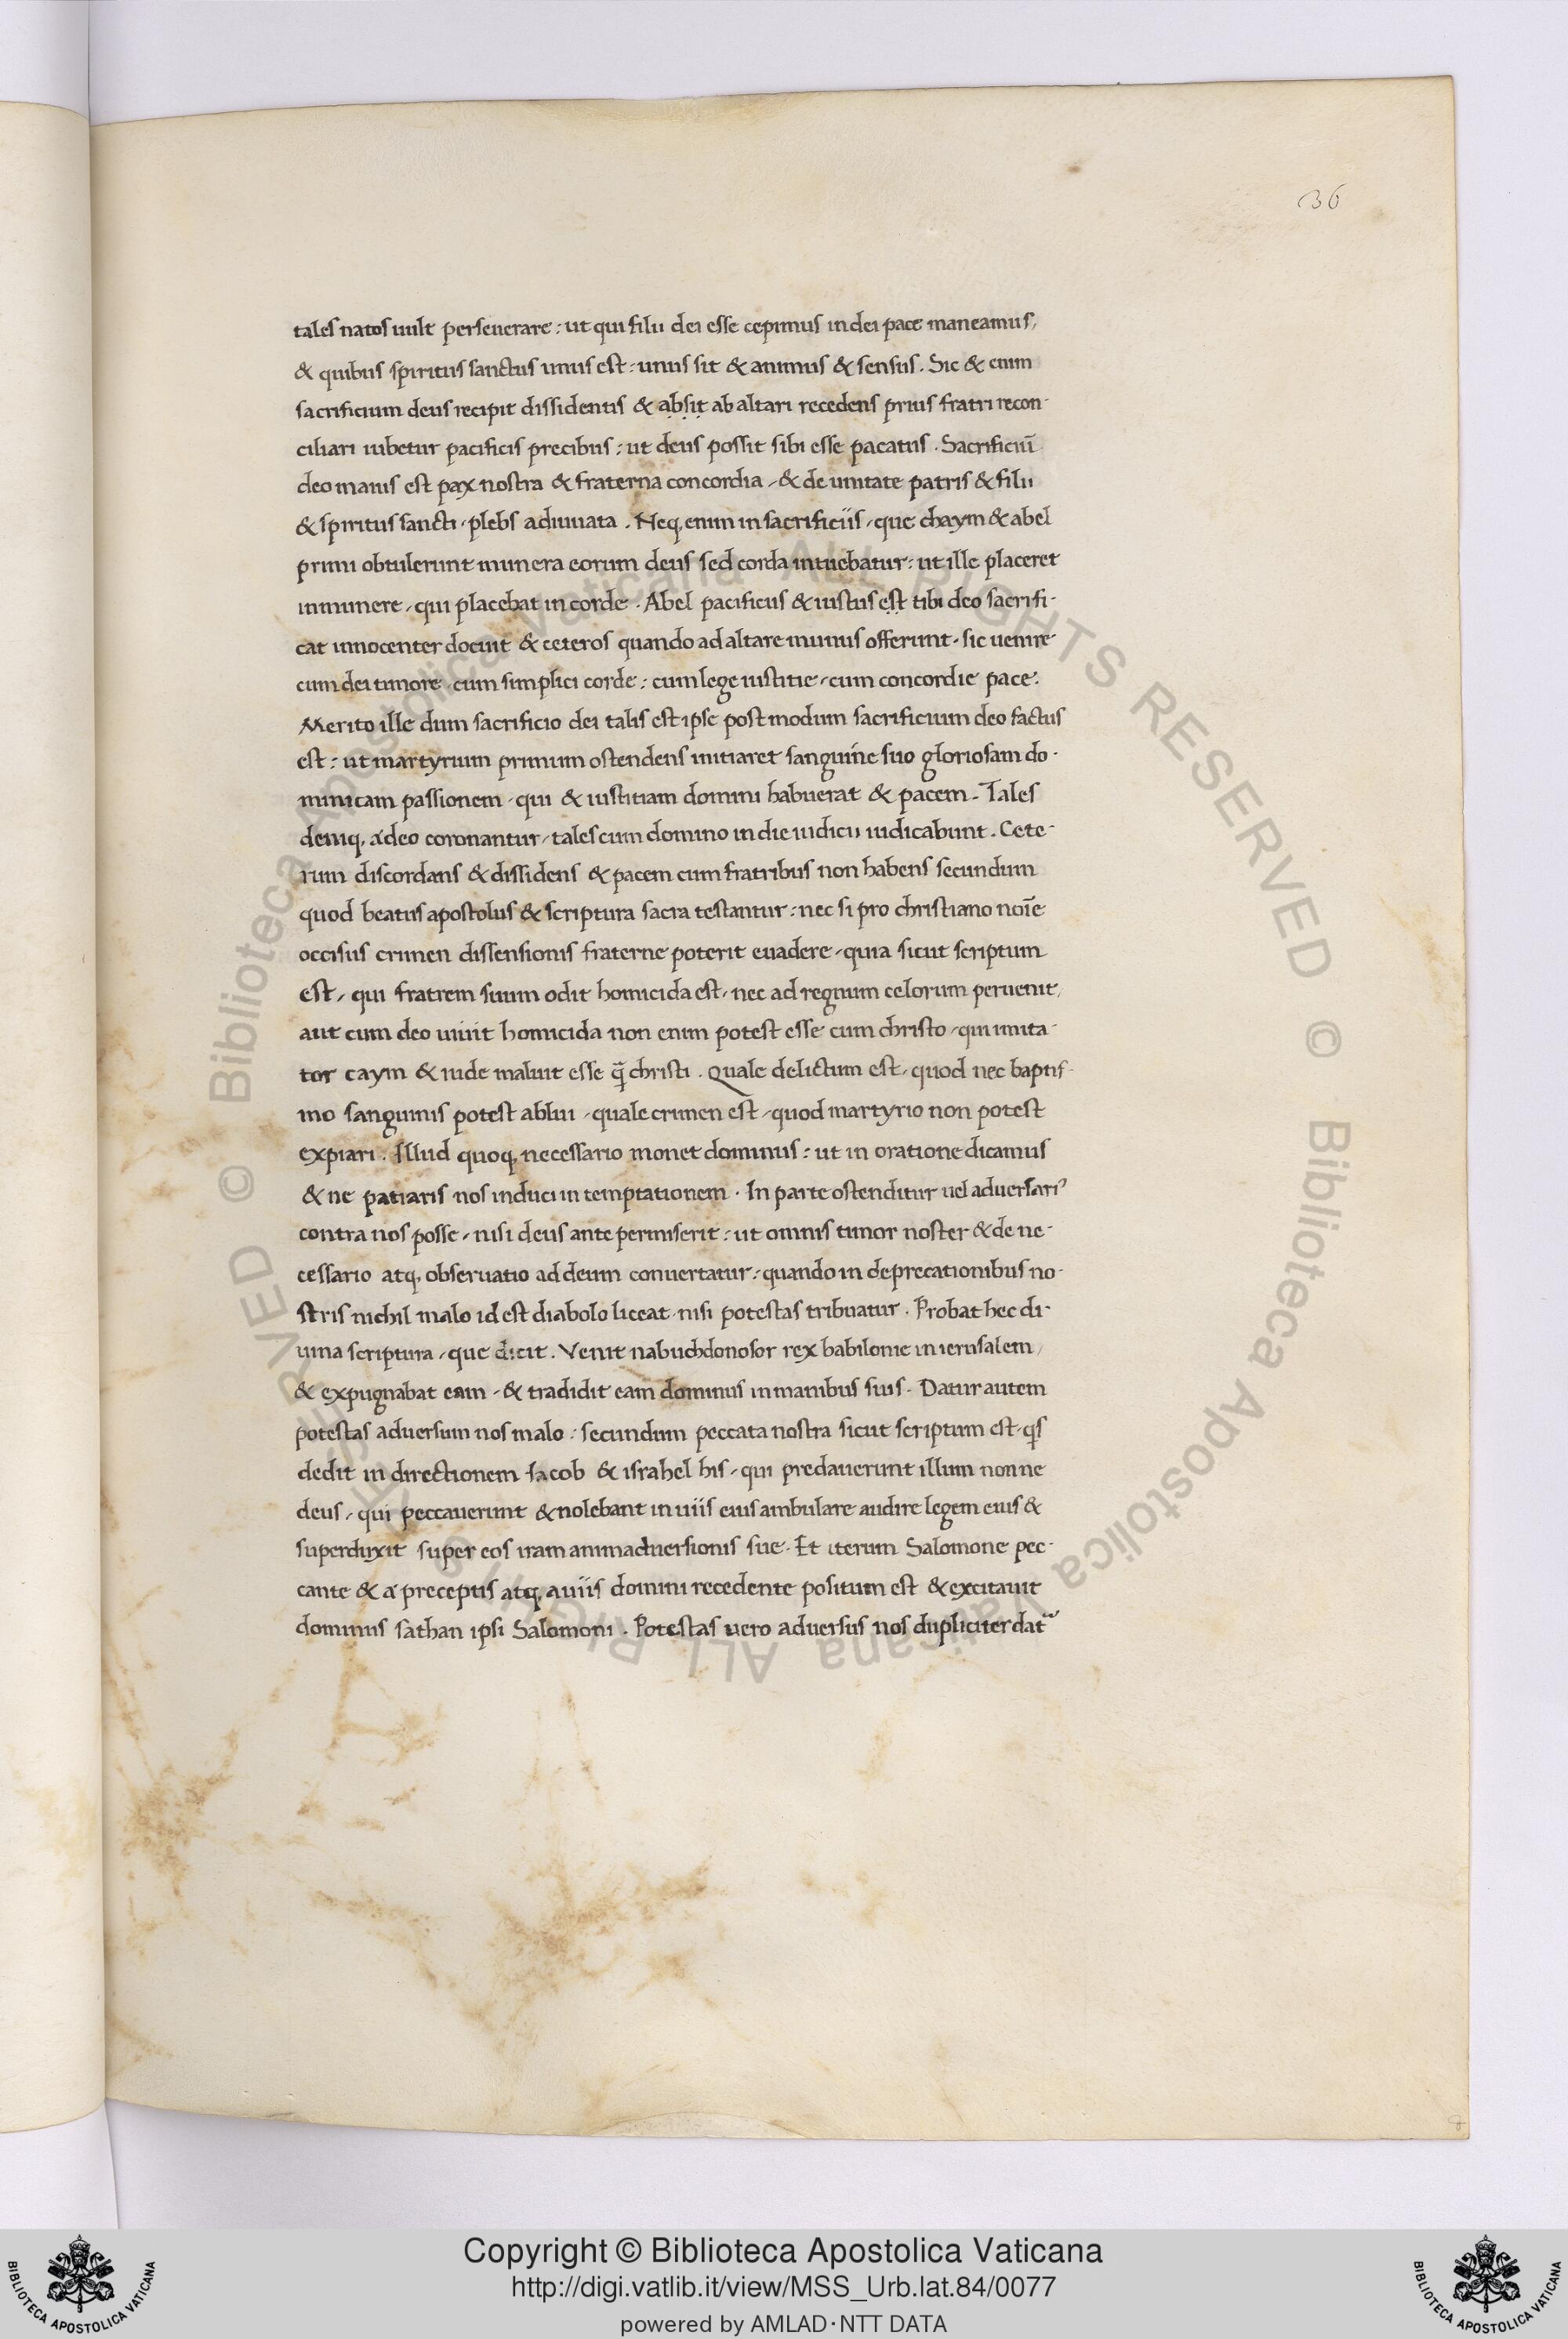 36
tales natos uult perseuerare: ut qui filii dei esse cepimus in dei pace maneamus,
& quibus spiritus sanctus unus est: unus sit & animus & sensus. Sic & enim
sacrificium deus recipit dissidentis & absit ab altari recedens prius fratri recon-
ciliari iubetur pacificis precibus: ut deus possit sibi esse pacatus. Sacrificiū
deo maius est pax nostra & fraterna concordia, & de unitate patris & filii
& spiritus sancti, plebs adunata. Neq, enim in sacrificiis, que chaym & abel
primi obtulerunt munera eorum deus sed corda intuebatur: ut ille placeret
in munere, qui placebat in corde. Abel pacificus & iustus est tibi deo sacrifi-
cat innocenter docuit & ceteros quando ad altare munus offerunt, sic uenire
cum dei timore, cum simplici corde: cum lege iustitie, cum concordie pace.
Merito ille dum sacrificio dei talis est ipse postmodum sacrificium deo factus
est: ut martyrium primum ostendens initiaret sanguine suo gloriosam do-
minicam passionem, qui & iustitiam domini habuerat & pacem. Tales
deniq, a deo coronantur, tales cum domino in die iudicii iudicabunt. Cete-
rum discordans & dissidens & pacem cum fratribus non habens secundum
quod beatus apostolus & scriptura sacra testantur: nec si pro christiano noīe
occisus crimen dissensionis fraterne poterit euadere, quia sicut scriptum
est, qui fratrem suum odit homicida est, nec ad regnum celorum peruenit,
aut cum deo uiuit homicida non enim potest esse cum christo, qui imita-
tor caym & iude maluit esse q̄ christi. Quale delictum est, quod nec baptis-
mo sanguinis potest ablui, quale crimen est, quod martyrio non potest
expiari. Illud quoq, necessario monet dominus: ut in oratione dicamus
& ne patiaris nos induci in temptationem. In parte ostenditur uel aduersari9
contra nos posse, nisi deus ante permiserit: ut omnis timor noster & de ne-
cessario atq, obseruatio ad deum conuertatur: quando in deprecationibus no-
stris nichil malo id est diabolo liceat, nisi potestas tribuatur. Probat hec di-
uina scriptura, que dicit. Venit nabuchdonosor rex babilonie in ierusalem,
& expugnabat eam, & tradidit eam dominus in manibus suis. Datur autem
potestas aduersum nos malo: secundum peccata nostra sicut scriptum est, qs
dedit in directionem Iacob & israhel his, qui predauerunt illum nonne
deus, qui peccauerunt & nolebant in uiis eius ambulare audire legem eius &
superduxit super eos iram animaduersionis sue. Et iterum Salomone pec-
cante & a preceptis atq, a uiis domini recedente positum est & excitauit
dominus sathan ipsi Salomoni. Potestas uero aduersus nos dupliciter dat᷑
© Biblioteca Apostolica Vaticana ALL RIGHTS RESERVED © Biblioteca Apostolica Vaticana ALL RIGHTS RESERVED
Copyright © Biblioteca Apostolica Vaticana
http://digi.vatlib.it/view/MSS_Urb.lat.84/0077
powered by AMLAD·NTT DATA
BIBLIOTECA APOSTOLICA VATICANA
BIBLIOTECA APOSTOLICA VATICANA